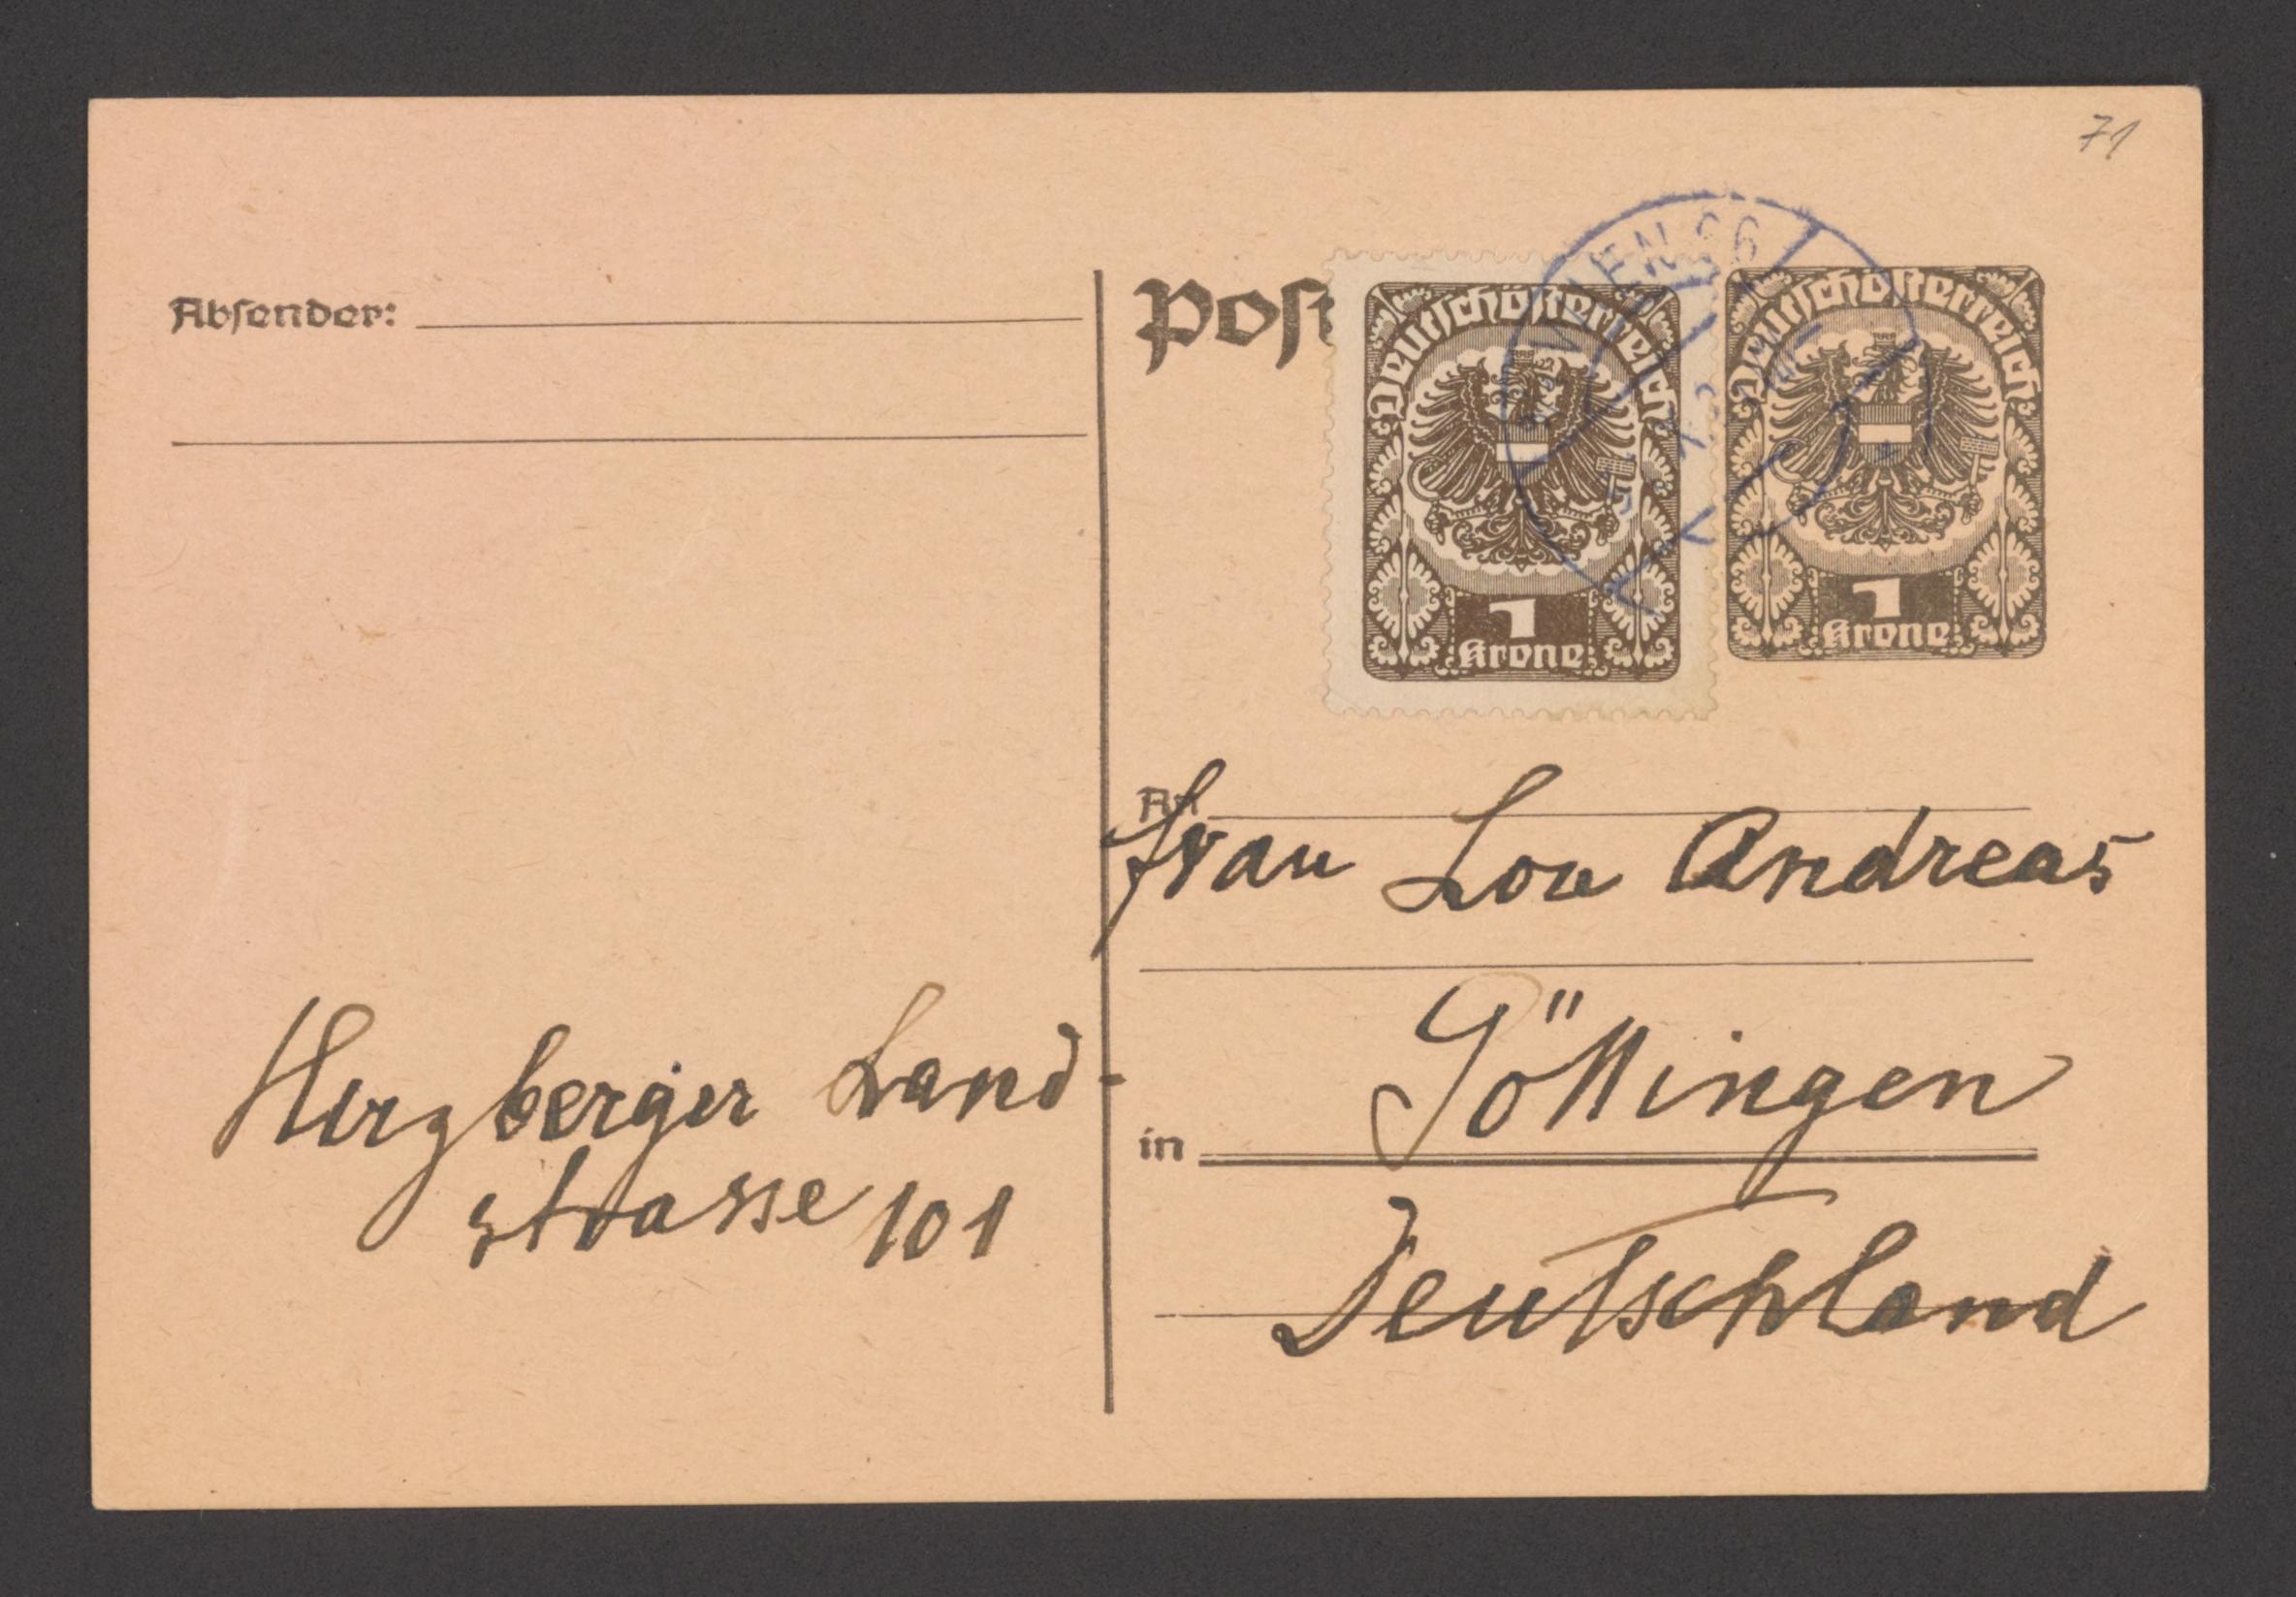 71
Absender:
Post
Deutschösterreich
1
Krone
Deutschösterreich
1
Krone
WIEN
An
Frau Lou Andreas
in Göttingen
Deutschland
Herzberger Land-
strasse 101